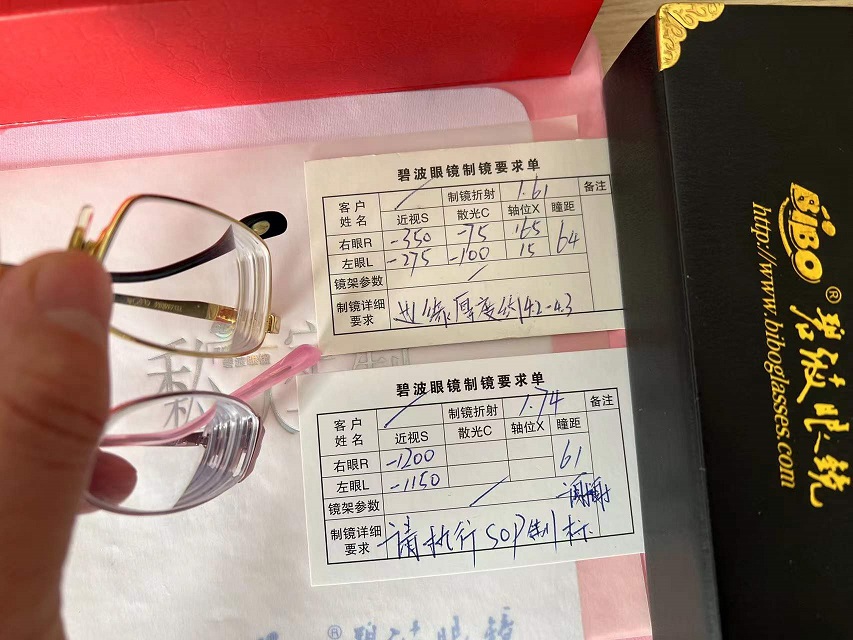 碧波眼镜制镜要求单
客户姓名 / 制镜折射 1.61 备注
近视S 散光C 轴位X 瞳距
右眼R -350 -75 165 64
左眼L -275 -100 15
镜架参数 /
制镜详细要求 边缘厚度约4.2-4.3
碧波眼镜
碧波眼镜制镜要求单
客户姓名 / 制镜折射 1.74 备注
近视S 散光C 轴位X 瞳距
右眼R -1200 61
左眼L -1150
镜架参数 /
制镜详细要求 请执行SOP制标
BiBO® 碧波眼镜
http://www.biboglasses.com
® 碧波眼镜